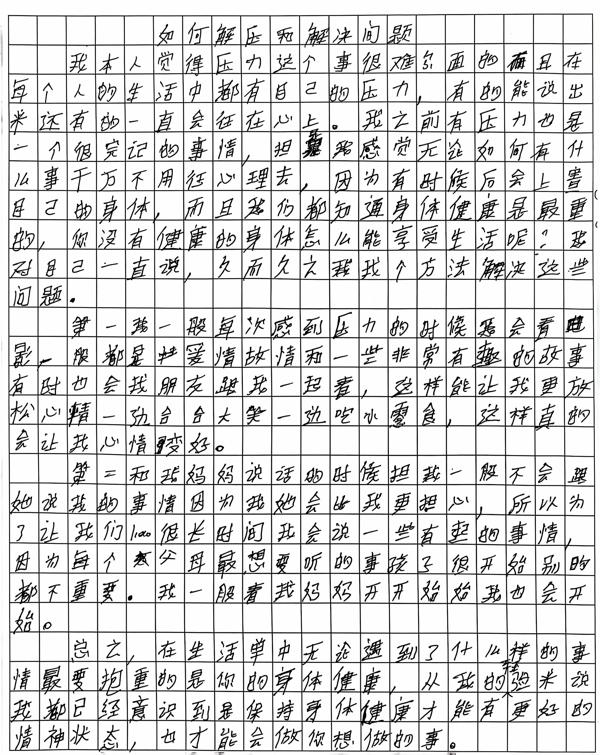 如何解压和解决问题
我本人觉得压力这个事很难尔面的而且在
每个人的生活中都有自己的压力,有的能说出
来还有的一直会征在心上。我之前有压力也是
一个很完记的事情,担我感觉无论如何有什
么事千万不用征心理去,因为有时候后会上害
自己的身体,而且我们都知道身体健康是最重
的,你没有健康的身体怎么能享受生活呢?我
对自己一直说,久而久之我找个方法解决这些
问题。
第一我一般每次感到压力的时候我会看电
影,一般都是找爱情故情和一些非常有趣的故事
有时也会找朋友跟我一起看,这样能让我更放
松心精一边合合大笑一边吃小零食,这样真的
会让我心情变好。
第二和我妈妈说话的时候担我一般不会跟
她说我的事情因为我她会比我更担心,所以为
了让我们很长时间我会说一些有趣的事情,
因为每个父母最想要听的事孩子很开始别的
都不重要。我一般看我妈妈开开始始我也会开
始。
总之,在生活单中无论遇到了什么样的事
情最要抱重的是你的身体健康,从我的经来说
我都已经意识到是保持身体健康才能有更好的
情神状态,也才能会做你想做的事。